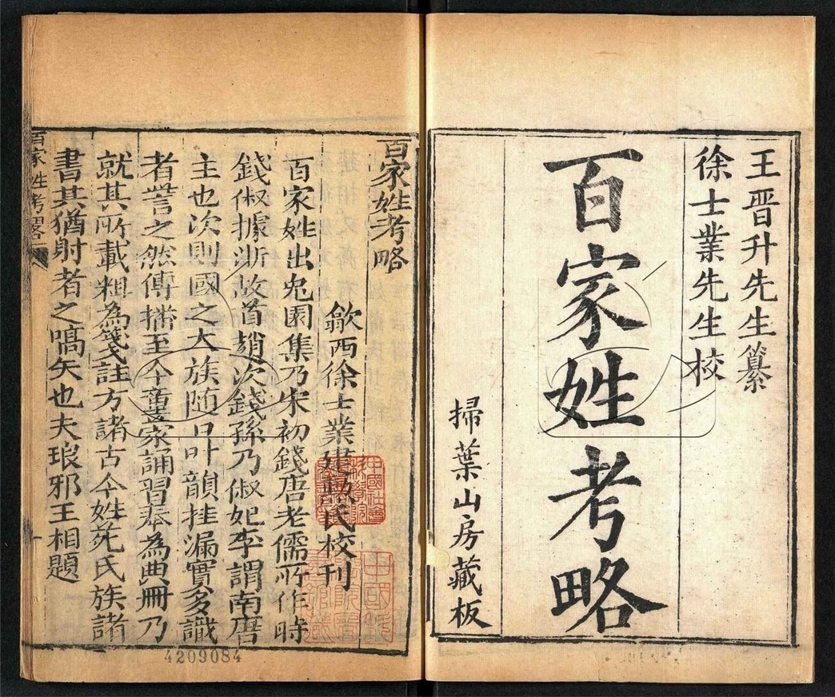 王晋升先生纂
徐士業先生校
百家姓考略
掃葉山房藏板
百家姓考略
歙西徐士業建勲氏校刊
百家姓出兎園集乃宋初錢唐老儒所作時
錢俶據浙故首趙次錢孫乃俶妃李謂南唐
主也次則國之大族随口叶韻挂漏實多識
者訾之然傳播至今童蒙誦習奉為典冊乃
就其所載粗為箋註方諸古今姓苑氏族諸
書其猶射者之嚆矢也夫琅邪王相題
百家姓考畧
一
4209084